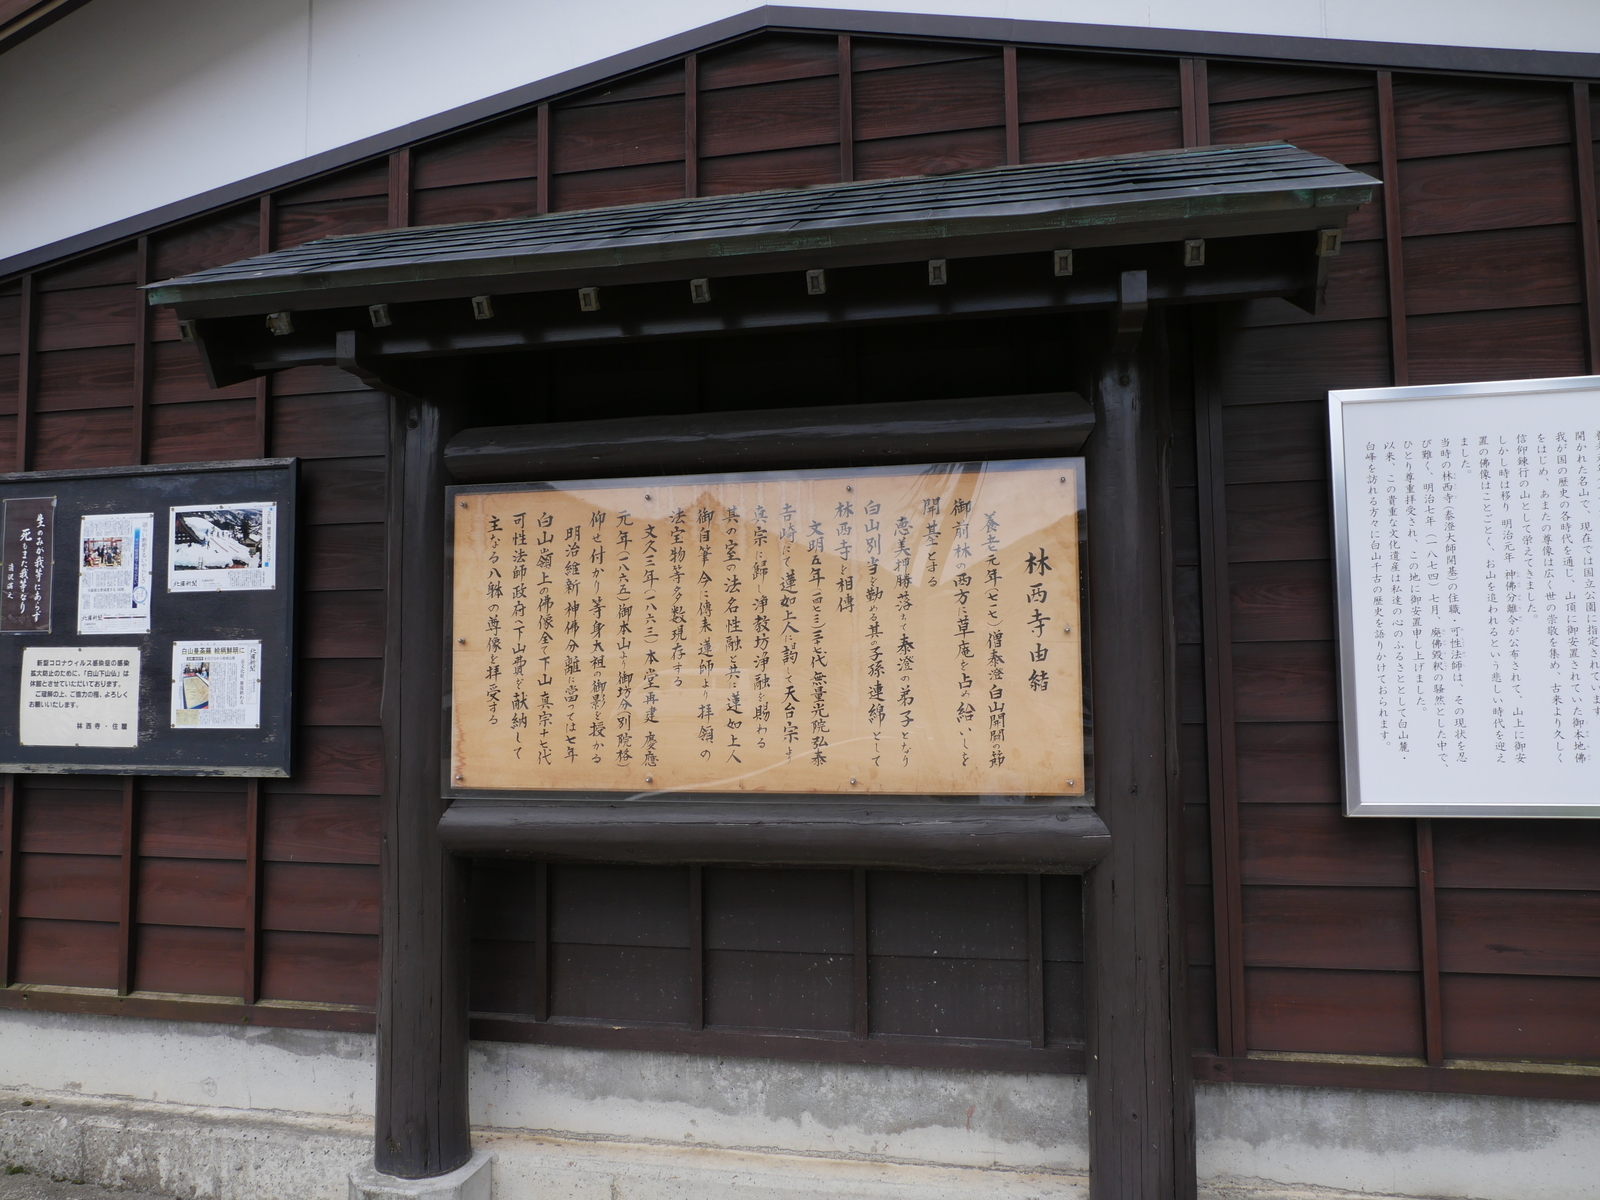 林西寺由緒
養老元年(七一七)僧泰澄白山開闢の節
御前林の西方に草庵を占め給いしを
開基とする
恵美押勝落ちて泰澄の弟子となり
白山別当を勤める其子孫連綿として
林西寺を相傳
文明五年(一四七三)三十七代無量光院弘泰
吉崎にて蓮如上人に謁して天台宗より
真宗に歸し浄教坊浄融を賜わる
其の室の法名性融と共に蓮如上人
御自筆今に傳来蓮師より拝領の
法宝物等多数現存する
文久三年(一八六三)本堂再建慶應
元年(一八六五)御本山より御坊分(別院格)
仰せ付かり等身大祖の御影を授かる
明治維新神佛分離に當っては七年
白山嶺上の佛像全て下山真宗十七代
可性法師政府へ下山費を献納して
主なる八躰の尊像を拝受する
開かれた名山で、現在では国立公園に指定されています
我が国の歴史の各時代を通じ、山頂に御安置されていた御本地佛
をはじめ、あまたの尊像は広く世の崇敬を集め、古来より久しく
信仰錬行の山として栄えてきました。
しかし時は移り 明治元年 神佛分離令が公布されて、山上に御安
置の佛像はことごとく、お山を追われるという悲しい時代を迎え
ました。
当時の林西寺(泰澄大師開基)の住職・可性法師は、その現状を忍
び難く、明治七年(一八七四)七月、廃佛毀釈の騒然とした中で、
ひとり尊重拝受され、この地に御安置申し上げました。
以来、この貴重な文化遺産は私達の心のふるさととして白山麓・
白峰を訪れる方々に白山千古の歴史を語りかけておられます。
生のみが我等にあらず
死もまた我等なり
清沢満之
北國新聞
北國新聞
白山曼荼羅 絵柄鮮明に
北國新聞
新型コロナウィルス感染症の感染
拡大防止のために、「白山下山仏」は
休館とさせていただいております。
ご理解の上、ご協力の程、よろしく
お願いいたします。
林西寺・住職